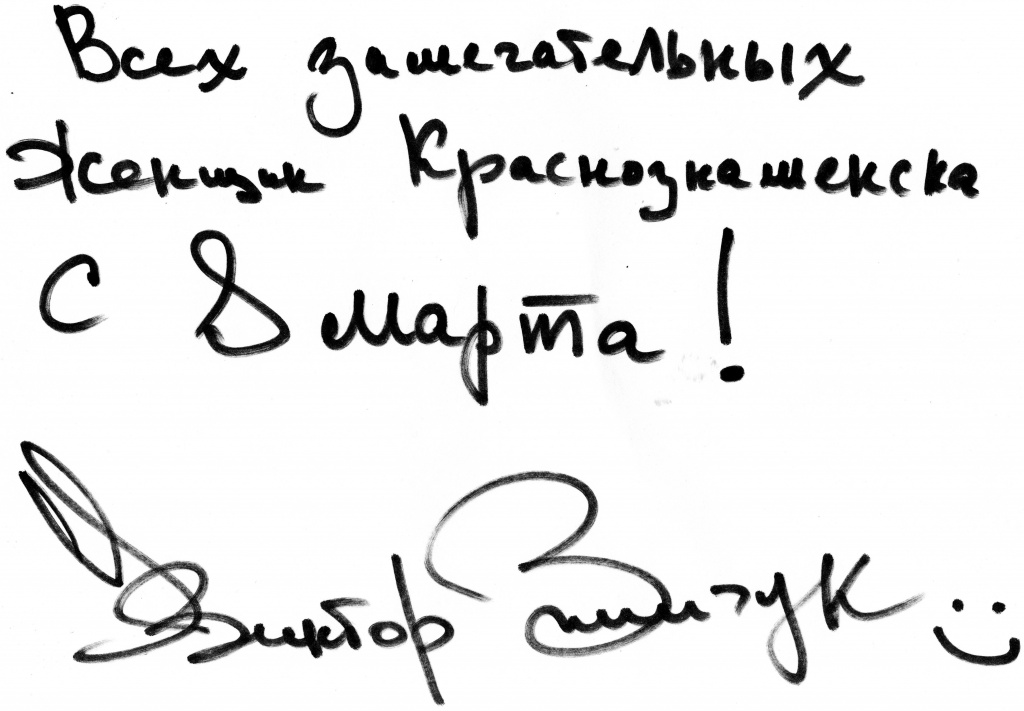 Всех замечательных
женщин Краснознаменска
С 8 Марта!
Виктор Зинчук :)